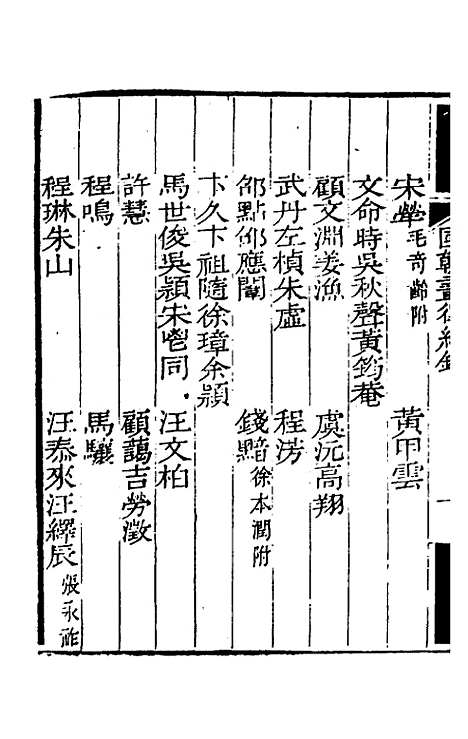 國朝畫徵續錄
一
宋犖毛奇齡附 黃甲雲
文命時吳秋聲黃筠菴
顧文淵姜漁 虞沅高翔
武丹左楨朱虛 程涝
邵點邵應闡 錢黯徐本潤附
卞久卞祖隨徐璋余頴
馬世俊吳頴宋 同 汪文柏
許慧 顧藹吉勞澂
程鳴 馬驤
程琳朱山 汪泰來汪繹辰張永祚